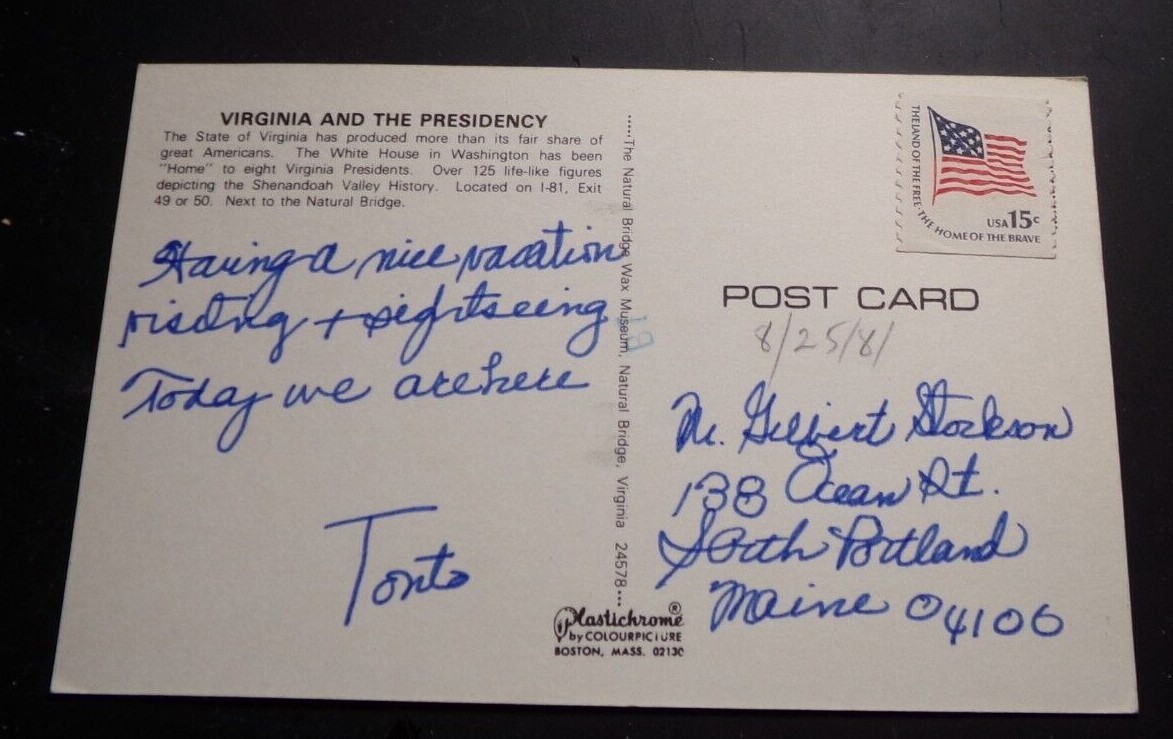 VIRGINIA AND THE PRESIDENCY
The State of Virginia has produced more than its fair share of
great Americans. The White House in Washington has been
"Home" to eight Virginia Presidents. Over 125 life-like figures
depicting the Shenandoah Valley History. Located on I-81, Exit
49 or 50. Next to the Natural Bridge.
Having a nice vacation
visiting + sightseeing
Today we are here
Tonto
.....The Natural Bridge Wax Museum, Natural Bridge, Virginia 24578...
Plastichrome®
by COLOURPICTURE
BOSTON, MASS. 02130
THE LAND OF THE FREE·THE HOME OF THE BRAVE
USA 15c
POST CARD
8/25/81
Mr. Gilbert Stockson
138 Ocean St.
South Portland
Maine 04106